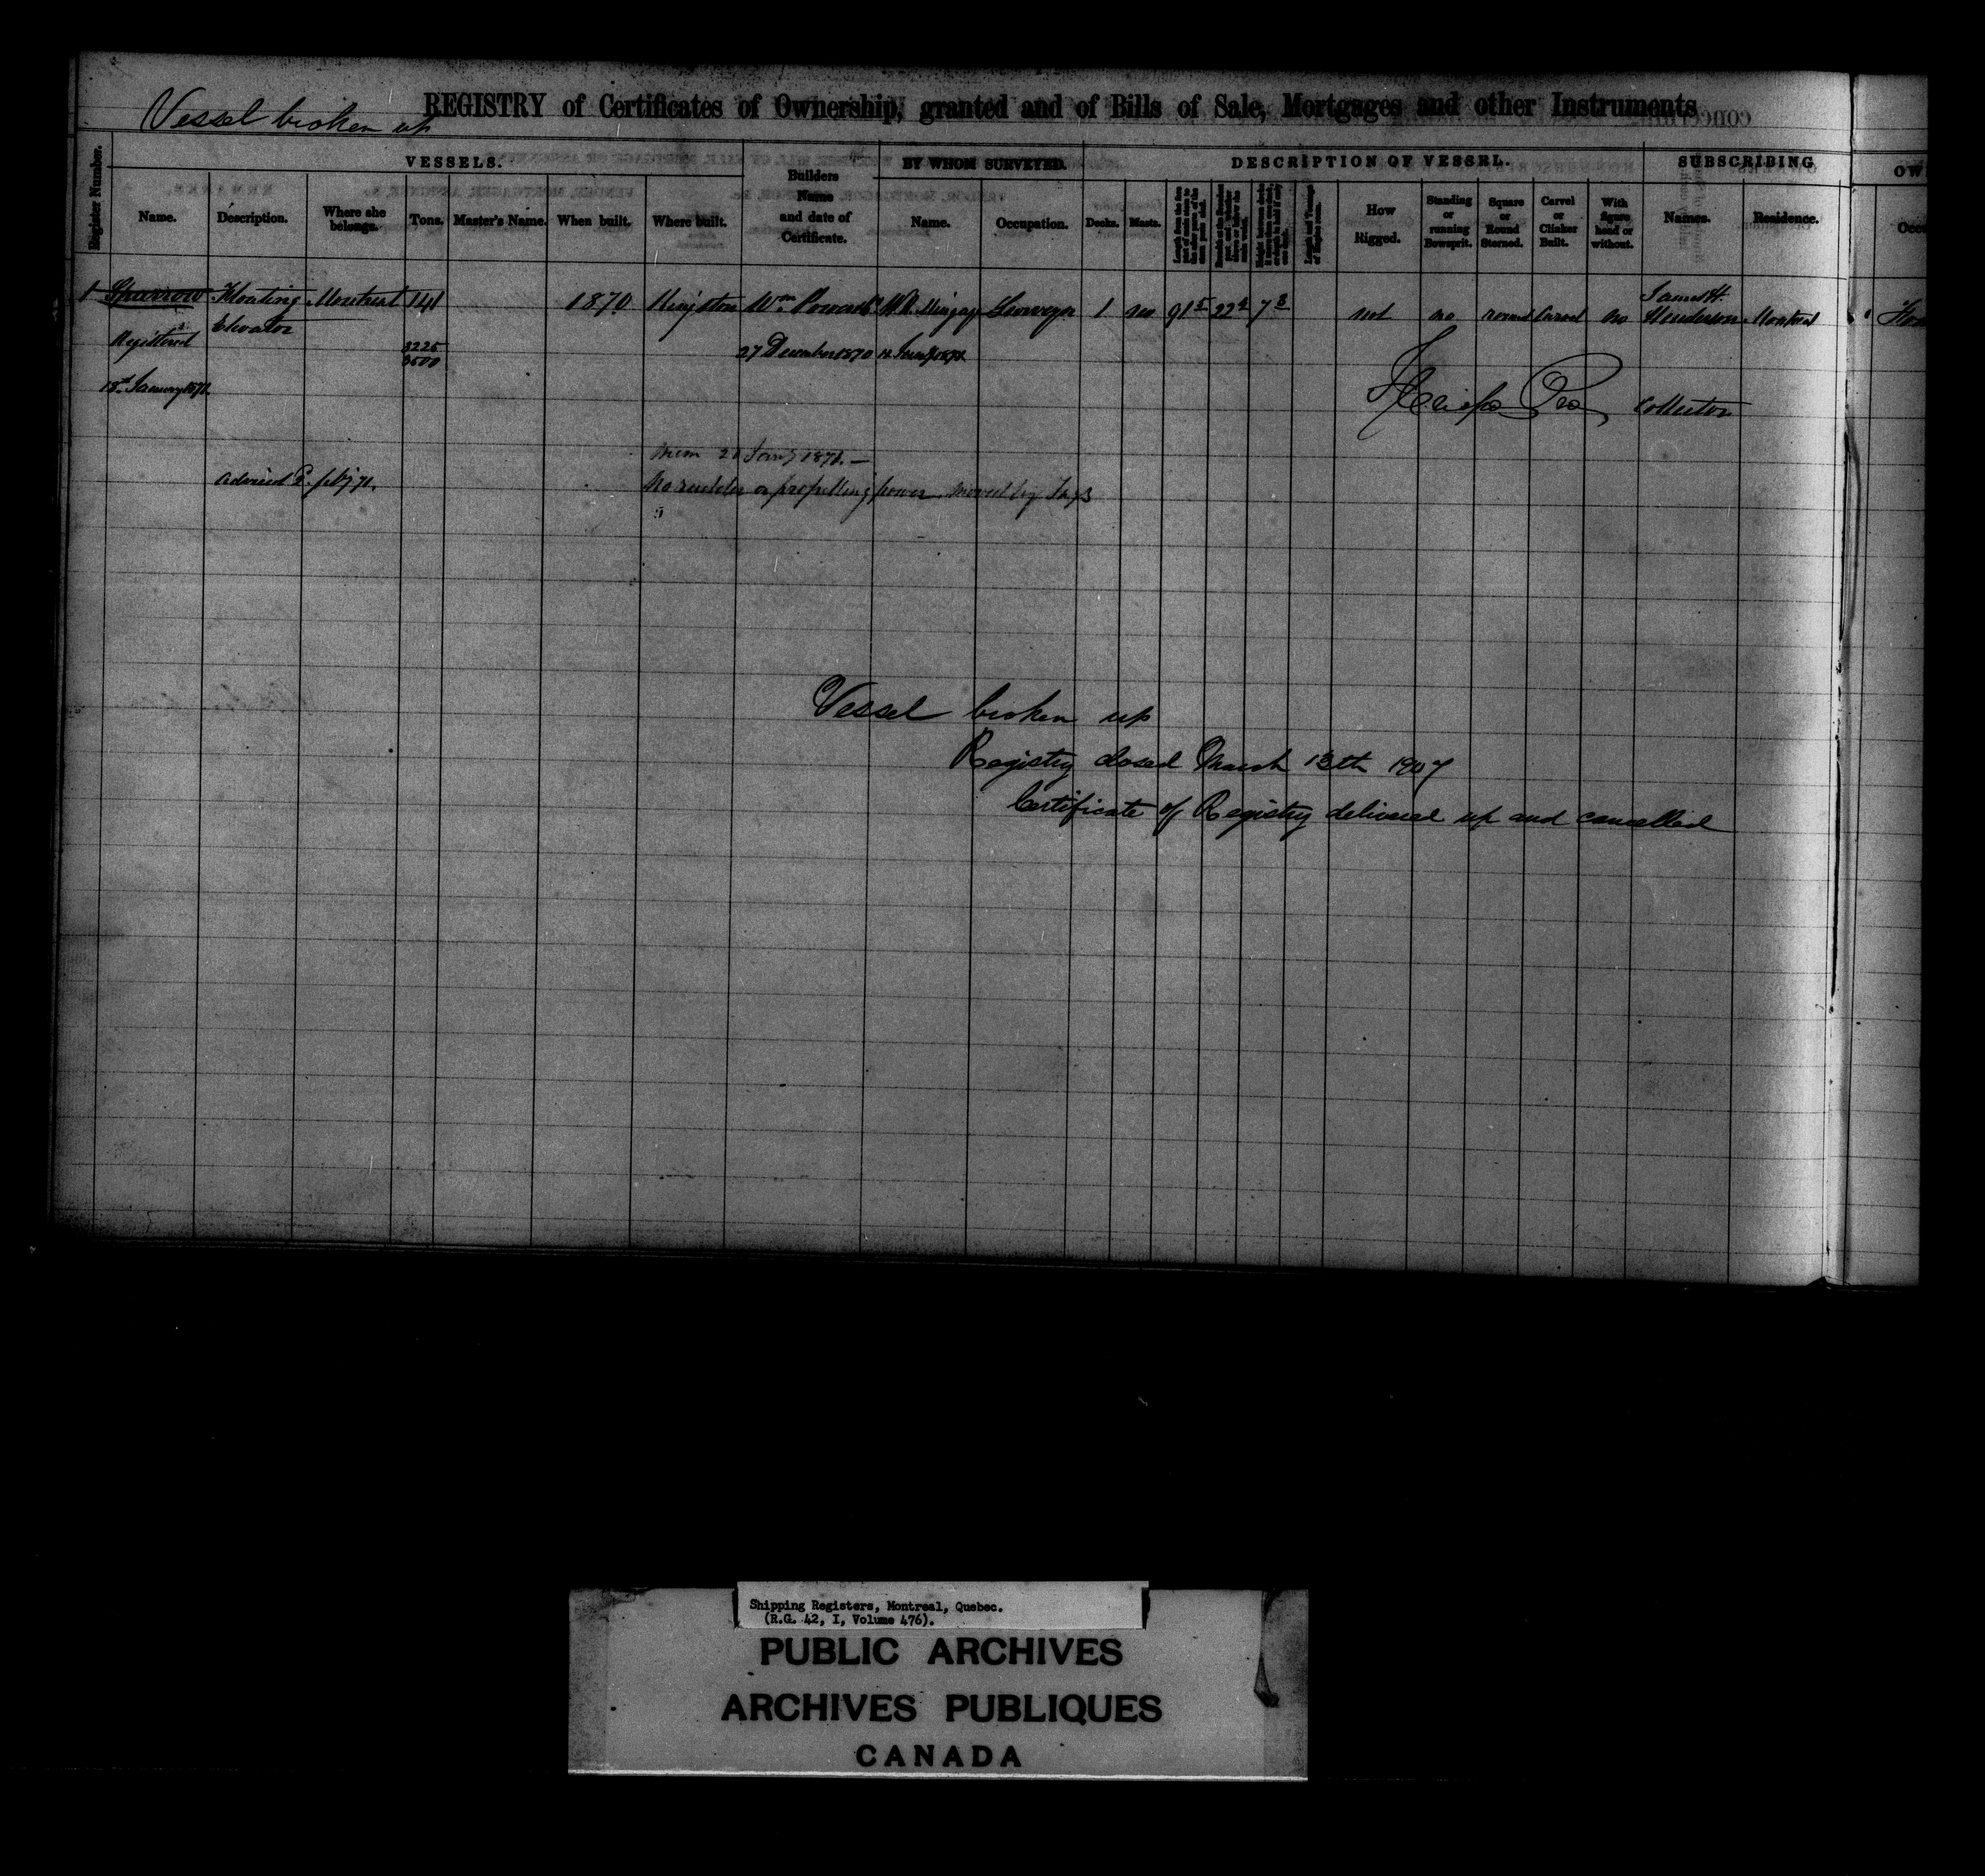 Vessel broken up
REGISTRY of Certificates of Ownership, granted and of Bills of Sale, Mortgages and other Instruments
VESSELS.
BY WHOM SURVEYED.
DESCRIPTION OF VESSEL.
SUBSCRIBING
OW
Register Number.
Name.
Description.
Where she belongs.
Tons.
Master's Name.
When built.
Where built.
Builders Name and date of Certificate.
Name.
Occupation.
Decks.
Masts.
How Rigged.
Standing or running Bowsprit.
Square or Round Sterned.
Carvel or Clinker Built.
With figure head or without.
Names.
Residence.
Occu
1 Sparrow Floating Elevator Montreal 141 1870 Kingston Wm. Surveyor 1 no 91 5 22 4 7 8 not no round Carvel no James H. Henderson Montreal
Registered
3225
3500
27 December 1870
18th January 1871.
Collector
Mem 21 Jany 1871. —
No rudder or propelling power moved by Tugs
Vessel broken up
Registry closed March 13th 1907
Certificate of Registry delivered up and cancelled
Shipping Registers, Montreal, Quebec.
(R.G. 42, I, Volume 476).
PUBLIC ARCHIVES
ARCHIVES PUBLIQUES
CANADA